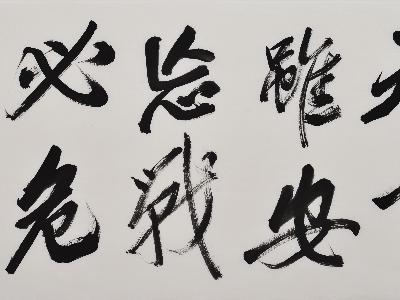 雖安
忘戰
必危